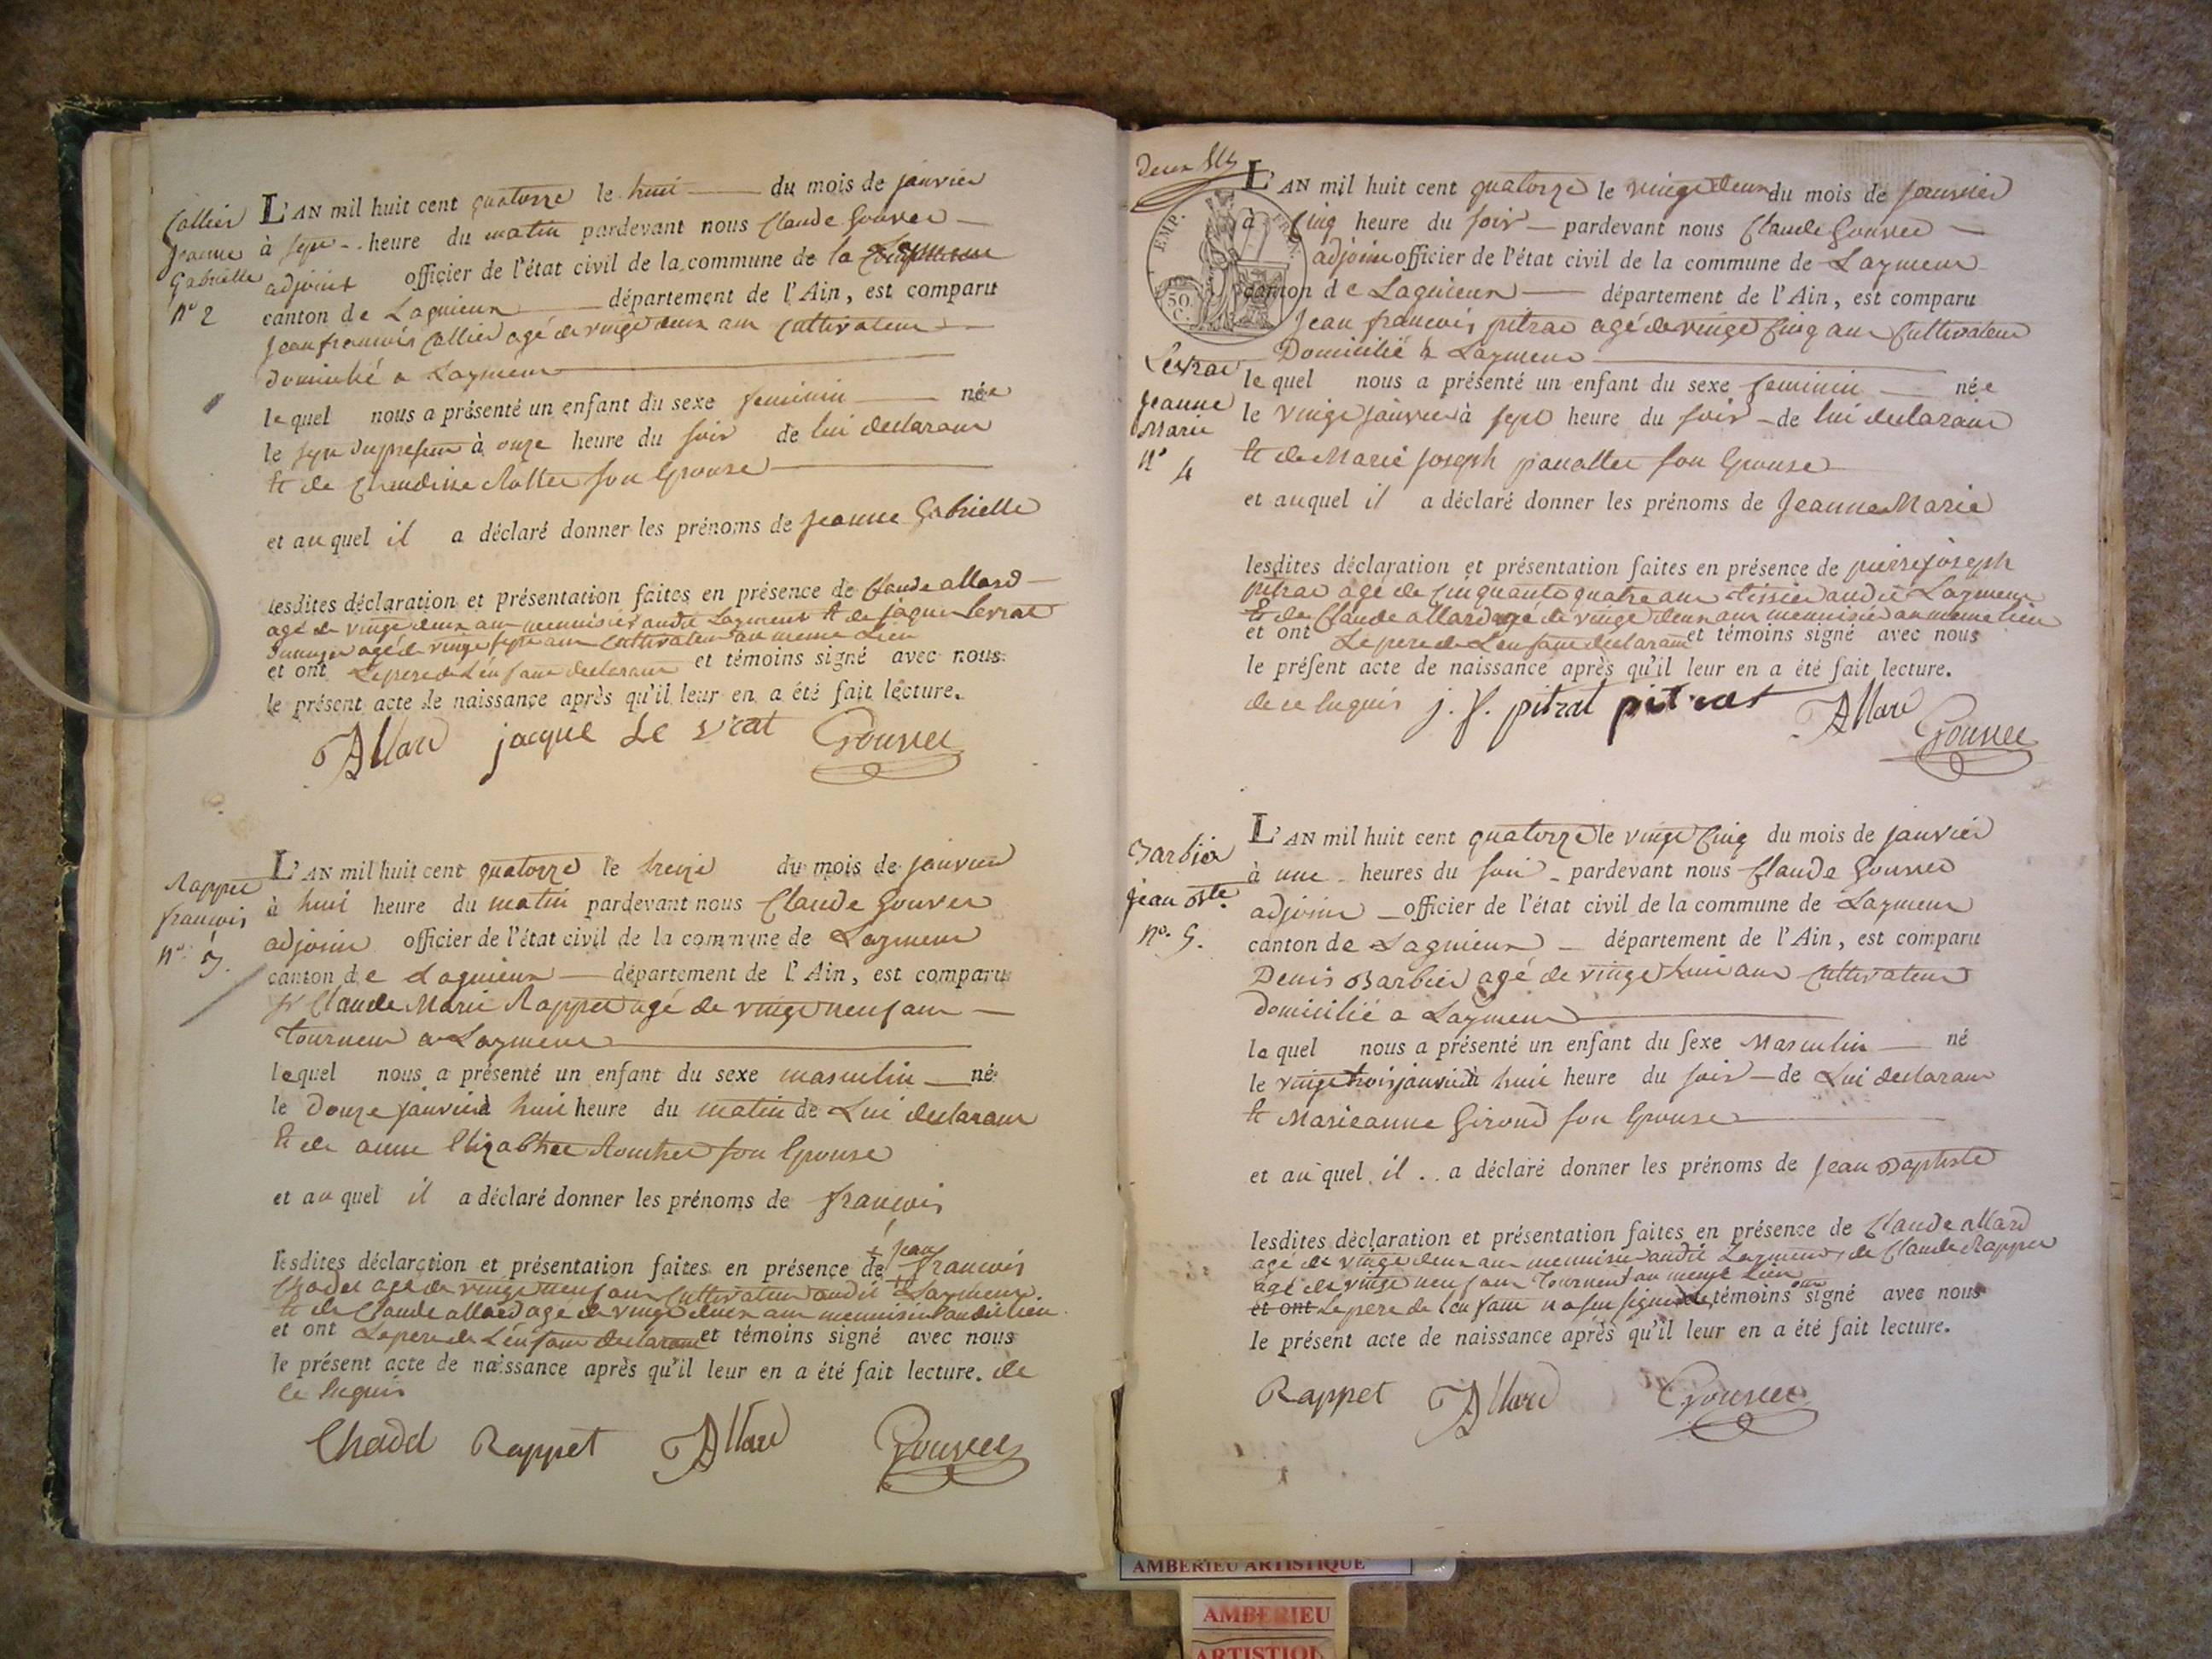 Collier
Jeanne
Gabrielle
n° 2
L'AN mil huit cent quatorze le huit du mois de janvier
à sept heure du matin pardevant nous Claude Gouvee
adjoint officier de l'état civil de la commune de la
canton de Lagnieux département de l'Ain, est comparu
Jean françois Collier agé de vingt deux ans Cultivateur
domicilié a Laymeux
lequel nous a présenté un enfant du sexe feminin née
le sept du present à onze heure du soir de lui declarant
et de Claudine son Epouse
et auquel il a déclaré donner les prénoms de Jeanne Gabrielle
lesdites déclaration et présentation faites en présence de Claude allard
agé de vingt deux ans menuisier audit Laymeux et de jaques Levrat
agé de vingt sept ans Cultivateur au meme Lieu
et ont Le pere de L'enfant declarant et témoins signé avec nous
le présent acte de naissance après qu'il leur en a été fait lecture.
Allard jacque Le vrat Gouvee
Rappet
françois
n° 3.
L'AN mil huit cent quatorze le treize du mois de janvier
à huit heure du matin pardevant nous Claude Gouvee
adjoint officier de l'état civil de la commune de Laymeux
canton de Lagnieux département de l'Ain, est comparu
sr Claude Marie Rappet agé de vingt neuf ans
tourneur a Laymeux
lequel nous a présenté un enfant du sexe masculin né
le Douze janvier à huit heure du matin de Lui declarant
Et de anne Elizabhet son Epouse
et auquel il a déclaré donner les prénoms de françois
lesdites déclaration et présentation faites en présence de + jean françois
Chadel agé de vingt neuf ans Cultivateur audit Laymeux.
et de Claude allard agé de vingt deux ans menuisier audit lieu
et ont Le pere de L'enfant declarant et témoins signé avec nous
le présent acte de naissance après qu'il leur en a été fait lecture. de
ce requis
Chadel Rappet Allard Gouvee
Deux
EMP. FRAN.
50. C.
Jeanne
Marie
n° 4
L'AN mil huit cent quatorze le vingt deux du mois de Janvier
à Cinq heure du soir pardevant nous Claude Gouvee
adjoint officier de l'état civil de la commune de Laymeux
canton de Lagnieux département de l'Ain, est comparu
Jean francois pitrat agé de vingt Cinq ans Cultivateur
Domicilié à Laymeux
lequel nous a présenté un enfant du sexe feminin née
le vingt janvier à sept heure du soir de lui declarant
et de Marie Joseph son Epouse
et auquel il a déclaré donner les prénoms de Jeanne Marie
lesdites déclaration et présentation faites en présence de pierre joseph
pitrat agé de cinquante quatre ans tissier audit Laymeux
Et de Claude allard agé de vingt deux ans menuisier au meme lieu
et ont Le pere de L'enfant declarant et témoins signé avec nous
le présent acte de naissance après qu'il leur en a été fait lecture.
de ce requis j. f. pitrat pitrat Allard
Gouvee
Barbier
Jean Bte
n°. 5.
L'AN mil huit cent quatorze le vingt Cinq du mois de janvier
à une heures du soir pardevant nous Claude Gouvee
adjoint officier de l'état civil de la commune de Laymeux
canton de Lagnieux département de l'Ain, est comparu
Denis Barbier agé de vingt huit ans Cultivateur
domicilié a Laymeux
lequel nous a présenté un enfant du sexe Masculin né
le vingt trois janvier à huit heure du soir de Lui declarant
et Marieanne Giroud son Epouse
et auquel il a déclaré donner les prénoms de Jean Baptiste
lesdites déclaration et présentation faites en présence de Claude allard
agé de vingt deux ans menuisier audit Laymeux, de Claude Rappet
agé de vingt neuf ans tourneur au meme Lieu
et ont Le pere de l'enfant n'a su signer les témoins ont signé avec nous
le présent acte de naissance après qu'il leur en a été fait lecture.
Rappet Allard Gouvee
AMBERIEU ARTISTIQUE
AMBERIEU